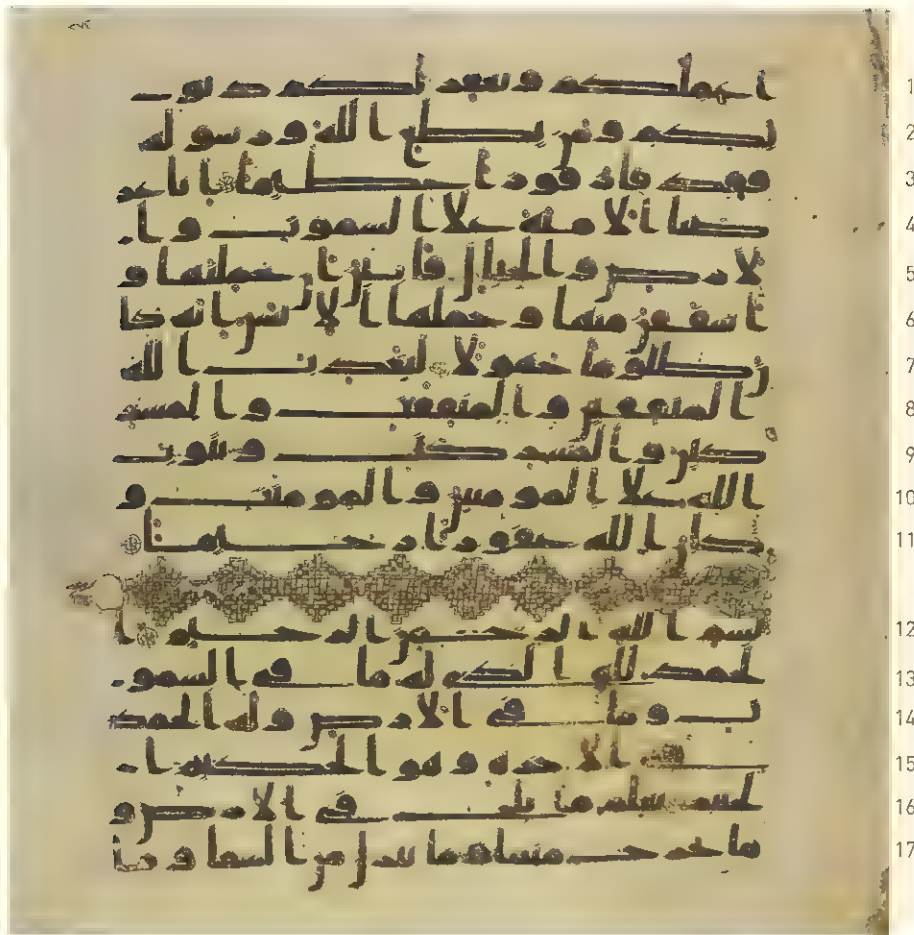 1 اعملكم ويغفر لكم ذنو
2 بكم ومن يطع الله ورسوله
3 فقد فاز فوزا عظيما انا عر
4 ضنا الامنة على السموت وا
5 لارض والجبال فابين ان يحملنها و
6 اشفقن منها وحملها الانسن انه كا
7 ن ظلوما جهولا ليعذب الله
8 المنفقين والمنفقت والمشر
9 كين والمشركت ويتوب
10 الله على المومنين والمومنت و
11 كان الله غفورا رحيما
12 بسم الله الرحمن الرحيم ا
13 لحمد لله الذي له ما في السمو
14 ت وما في الارض وله الحمد
15 في الاخرة وهو الحكيم ا
16 لخبير يعلم ما يلج في الارض و
17 ما يخرج منها وما ينزل من السما وما